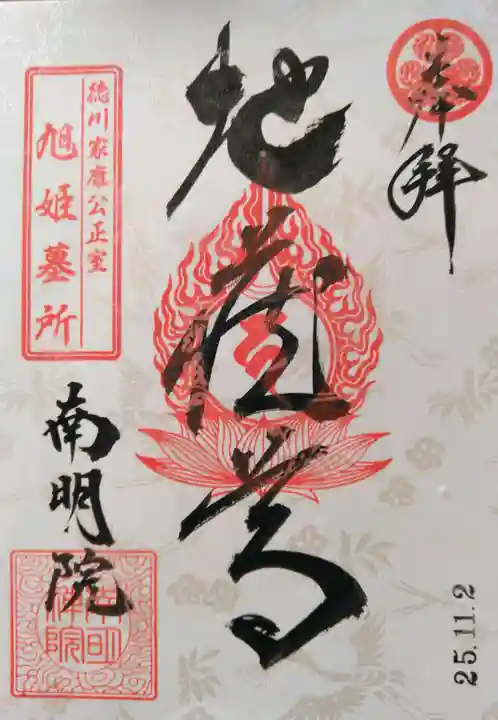 奉拝
地蔵尊
徳川家康公正室
旭姫墓所
南明院
南明禅院
25.11.2